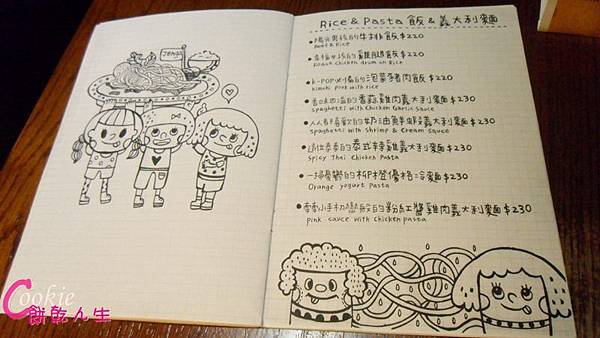 JENGA
Rice & Pasta 飯 & 義大利麵
●陽光男孩的牛排飯$220
Beef & Rice
●幸福女孩的雞腿飯$220
Roast Chicken drum w Rice
●K-POP必備的泡菜豬肉飯$220
kimchi pork with rice
●香味四溢的香蒜雞肉義大利麵$230
spaghetti with Chicken Garlic Sauce
●人人都喜歡的奶油鮮蝦義大利麵$230
spaghetti with Shrimp & Cream Sauce
●這位泰泰的泰式辣雞義大利麵$230
Spicy Thai Chicken Pasta
●一掃憂鬱的柳橙優格涼麵$230
Orange yogurt Pasta
●小手初戀般的粉紅醬雞肉義大利麵$230
pink sauce with chicken pasta
Cookie
餅乾人生